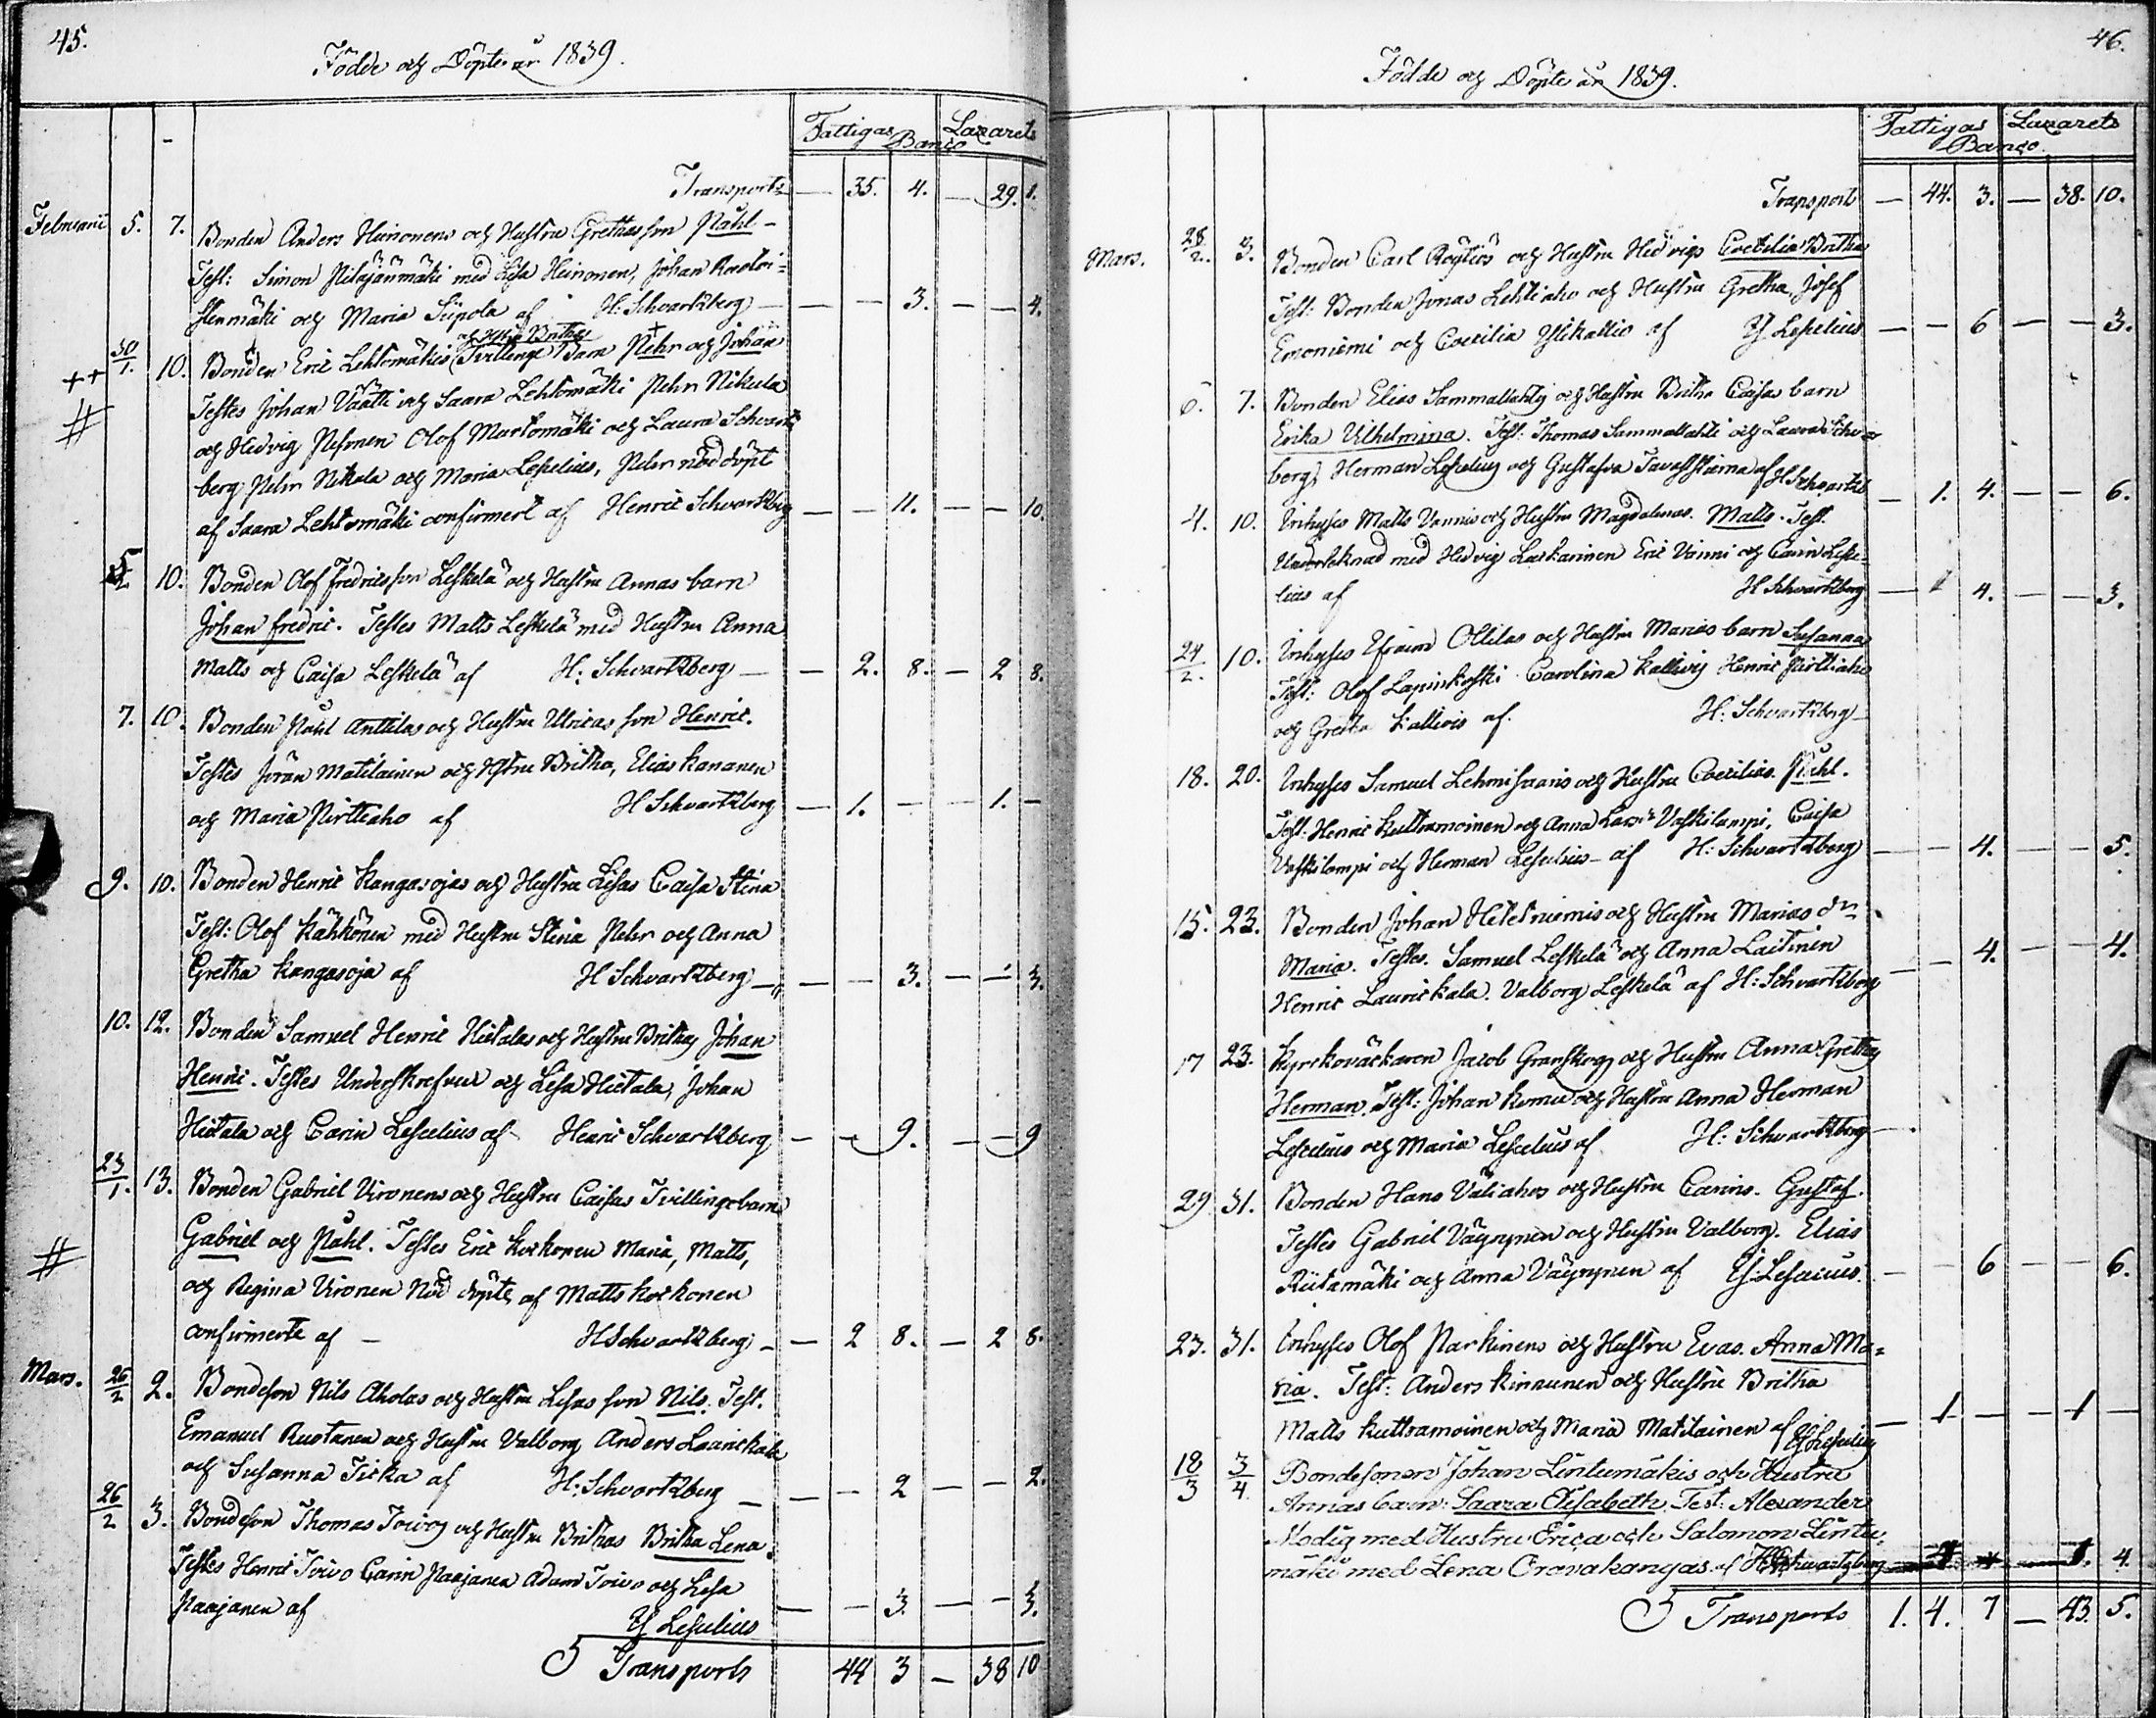 45.
Födde och Döpte år 1839.
Fattigas Banco Lazarets
Transport — 35. 4. — 29. 1.
Februarii 5. 7. Bonden Anders Heinonens och Hustru Grethas son Påhl
Test: Simon Pitkäjänmäki med Lisa Heinonen, Johan
stenmäki och Maria Siipola af H: Schvartzberg — — 3. — — 4.
och Hstru Brithas
++ 30/1. 10. Bonden Eric Lehtomäkis Tvillinge Barn Pehr och Johan
# Testes Johan Väätti och Saara Lehtomäki Pehr Nikula
och Hedvig Pesonen Olof Murtomäki och Laura Schvartz
berg Pehr Nikula och Maria Lescelius, Pehr nöddöpt
af Saara Lehtomäki confirmert af Henric Schvartzberg — — 11. — — 10.
5/2 10. Bonden Olof Fredricsson Leskelä och Hustru Annas barn
Johan Fredric. Testes Matts Leskelä med Hustru Anna
Matts och Caisa Leskelä af H: Schvartzberg — 2. 8. — 2 8.
7. 10. Bonden Påhl Anttilas och Hustru Ulricas son Henric.
Testes Jöran Matilainen och Hstru Britha, Elias Kananen
och Maria Pirttiaho af H Schvartzberg — 1. — — 1. —
9. 10. Bonden Henric Kangasojas och Hustru Lisas Caisa Stina
Test: Olof Kähkönen med Hustru Stina Pehr och Anna
Gretha Kangasoja af H Schvartzberg — — 3. — — 3.
10. 12. Bonden Samuel Henric Hietalas och Hustru Brithas Johan
Henric. Testes Underskrefven och Lisa Hietala, Johan
Hietala och Carin Lescelius af Henric Schvartzberg — — 9. — — 9
23/1. 13. Bonden Gabriel Vironens och Hustru Caisas Tvillingebarn
# Gabriel och Påhl. Testes Eric Korkonen Maria, Matts,
och Regina Vironen Nöd döpte af Matts Korkonen
confirmerte af — H Schvartzberg — 2 8. — 2 8.
Mars. 26/2 2. Bondeson Nils Aholas och Hustru Lisas son Nils. Test.
Emanuel Rustanen och Hustru Valborg Anders Laurickala
och Susanna Ticka af H: Schvartzberg — — 2 — — 2.
26/2 3. Bondeson Thomas Toivos och Hustru Brithas Britha Lena.
Testes Henric Toivo Carin Paajanen Adam Toivo och Lisa
Paajanen af H Lescelius — — 3. — — 3.
Transports 44 3 — 38 10
46.
Födde och Döpte år 1839.
Fattigas Banco. Lazarets
Transport — 44. 3. — 38. 10.
Mars. 28/2. 3. Bonden Carl Röytiös och Hustru Hedvigs Coecilia Britha
Test: Bonden Jonas Lehtiaho och Hustru Gretha, Josef
Emoniemi och Coecilia Ylikallio af H Lescelius — — 6 — — 3.
6. 7. Bonden Elias Sammallahtis och Hustru Britha Caisas barn
Erika Vilhelmina. Test: Thomas Sammallahti och Laura Schvar
berg, Herman Lescelius och Gustafva Tavaststierna af H Schvartzb — 1. 4. — — 6.
4. 10. Inhyses Matts Vannis och Hustru Magdalenas. Matts. Test.
Undertecknad med Hedvig Laskarinen Eric Vänni och Carin Lesce-
lius af H Schvartzberg — 1 4. — — 3.
24/2. 10. Inhyses Efraim Ollilas och Hustru Marias barn Susanna
Test: Olof Lapinkoski Carolina Kallivis Henric Pirttiaho
och Gretha Kallivis af. H: Schvartzberg
18. 20. Inhyses Samuel Lehmisaaris och Hustru Coecilias. Påhl.
Test: Henric Kuttramoinen och Anna Lars dr Vaskilampi, Caisa
Vaskilampi och Herman Lescelius af H: Schvartzberg — — 4. — — 5.
15. 23. Bonden Johan Heteiniemis och Hustru Marias dr
Maria. Testes. Samuel Leskelä och Anna Laitinen
Henric Laurickala. Valborg Leskelä af H: Schvartzberg — — 4. — — 4.
17 23. Kyrkoväcktaren Jacob Granskog och Hustru Anna Grethas
Herman. Test: Johan Komu och Hustru Anna Herman
Lescelius och Maria Lescelius af H: Schvartzberg
29 31. Bonden Hans Väliahos och Hustru Carins. Gustaf.
Testes Gabriel Väyrynen och Hustru Valborg. Elias
Riitamäki och Anna Väyrynen af H: Lescelius. — — 6 — — 6.
23. 31. Inhyses Olof Parkinens och Hustru Evas. Anna Ma-
ria. Test: Anders Kinnunen och Hustru Britha
Matts Kuttramoinen och Maria Matilainen af H Lescelius — 1 — — 1 —
18/3 3/4 Bondesonen Johan Lintumäkis och Hustru
Annas barn: Saara Elisabeth. Test: Alexander
Modig med Hustru Erica och Salomon Lintu-
mäki med Lena Oravakangas af H Schwartzberg 4.
Transports 1. 4. 7 — 43. 5.